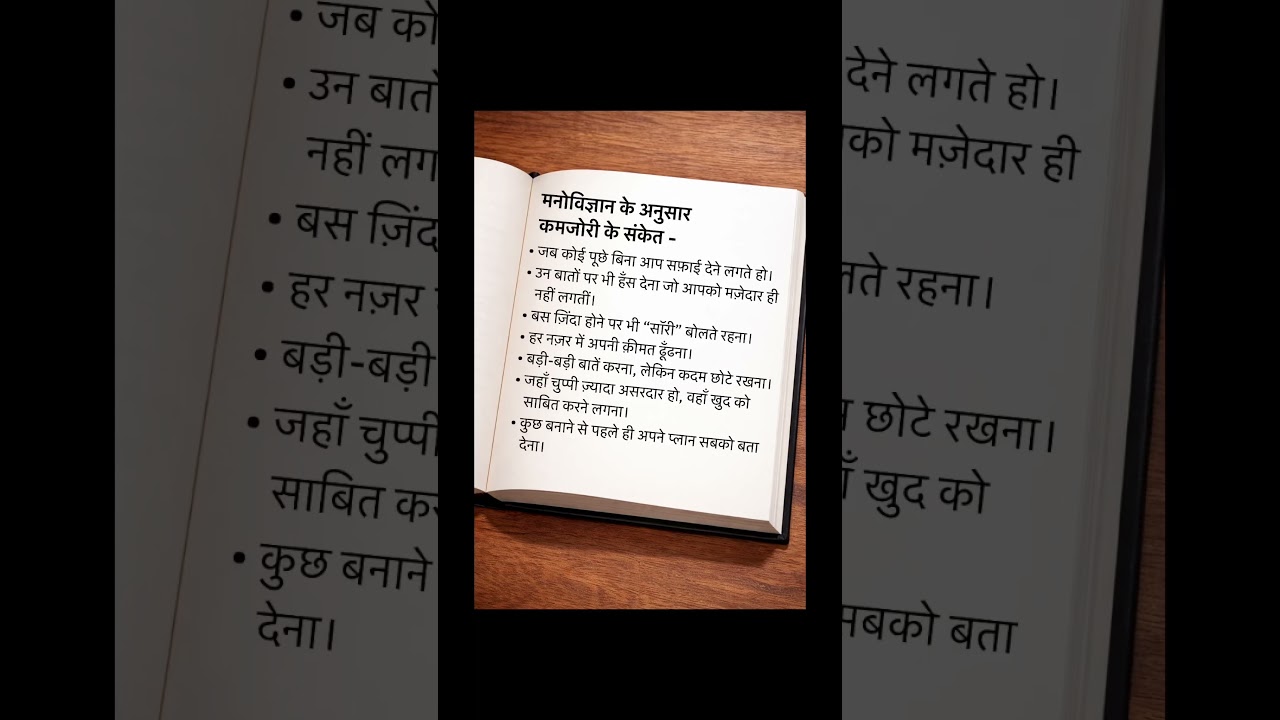 मनोविज्ञान के अनुसार
कमजोरी के संकेत -
• जब कोई पूछे बिना आप सफ़ाई देने लगते हो।
• उन बातों पर भी हँस देना जो आपको मज़ेदार ही
नहीं लगतीं।
• बस ज़िंदा होने पर भी “सॉरी” बोलते रहना।
• हर नज़र में अपनी क़ीमत ढूँढना।
• बड़ी-बड़ी बातें करना, लेकिन कदम छोटे रखना।
• जहाँ चुप्पी ज़्यादा असरदार हो, वहाँ खुद को
साबित करने लगना।
• कुछ बनाने से पहले ही अपने प्लान सबको बता
देना।